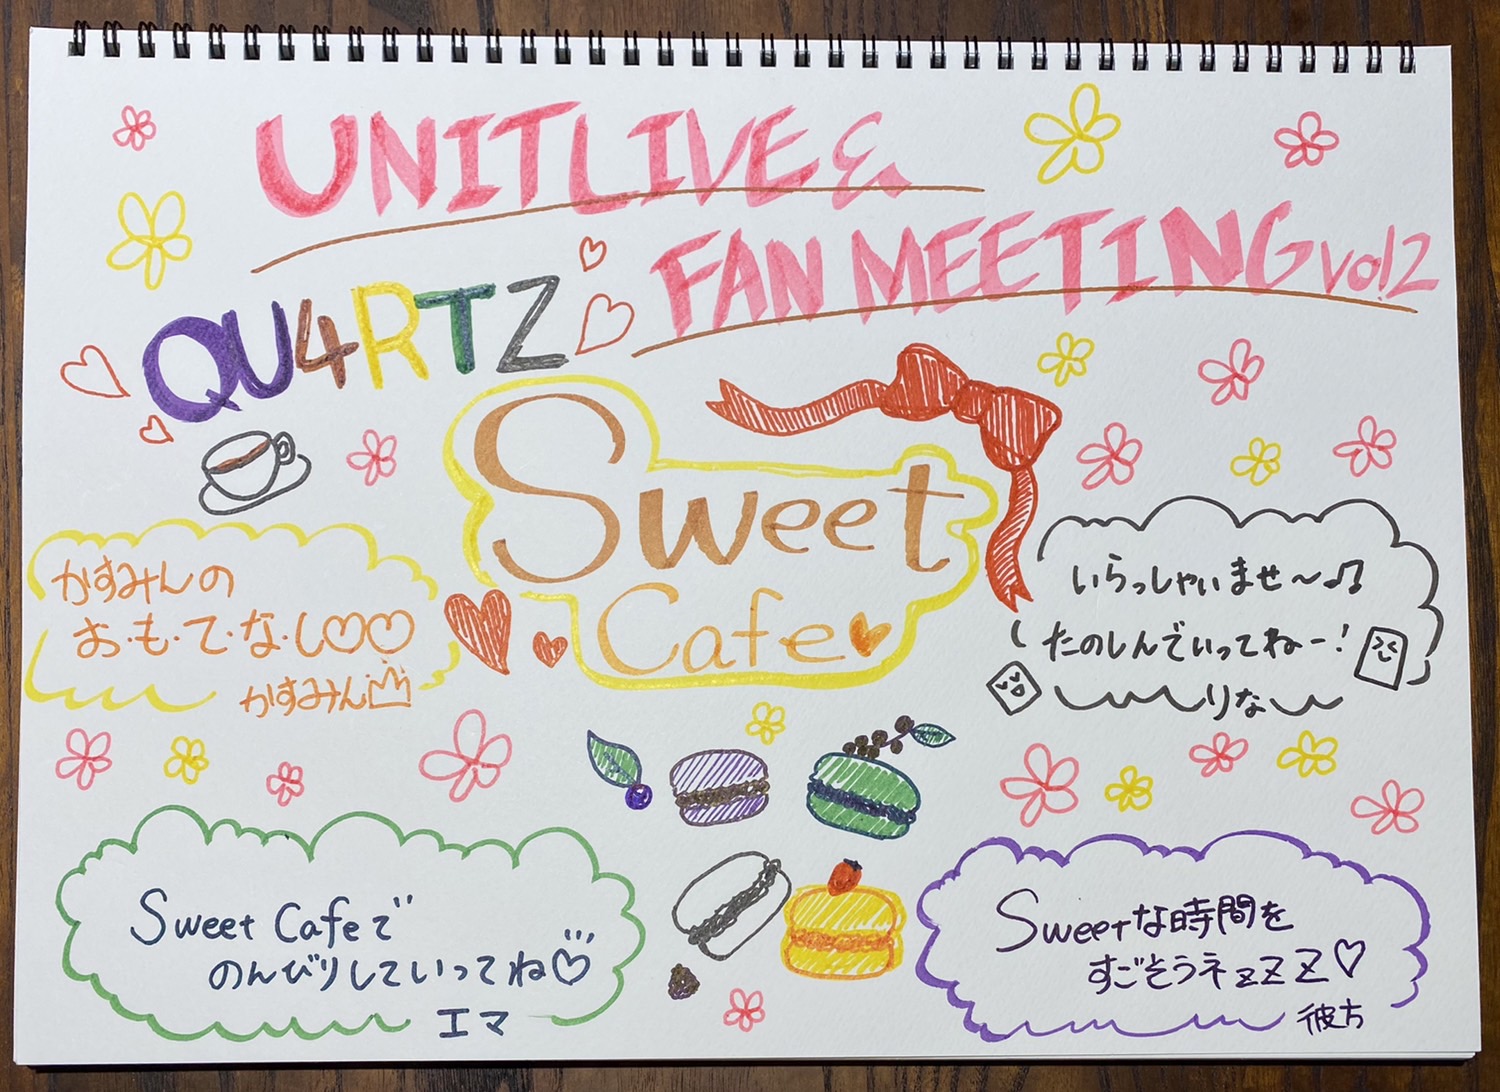 UNIT LIVE &
FAN MEETING vol.2
QU4RTZ
Sweet
Cafe
かすみんの
お・も・て・な・し♡♡
かすみん
いらっしゃいませ〜♫
たのしんでいってねー！
りな
Sweet Cafeで
のんびりしていってね♡
エマ
Sweetな時間を
すごそうネzzZZ♡
彼方